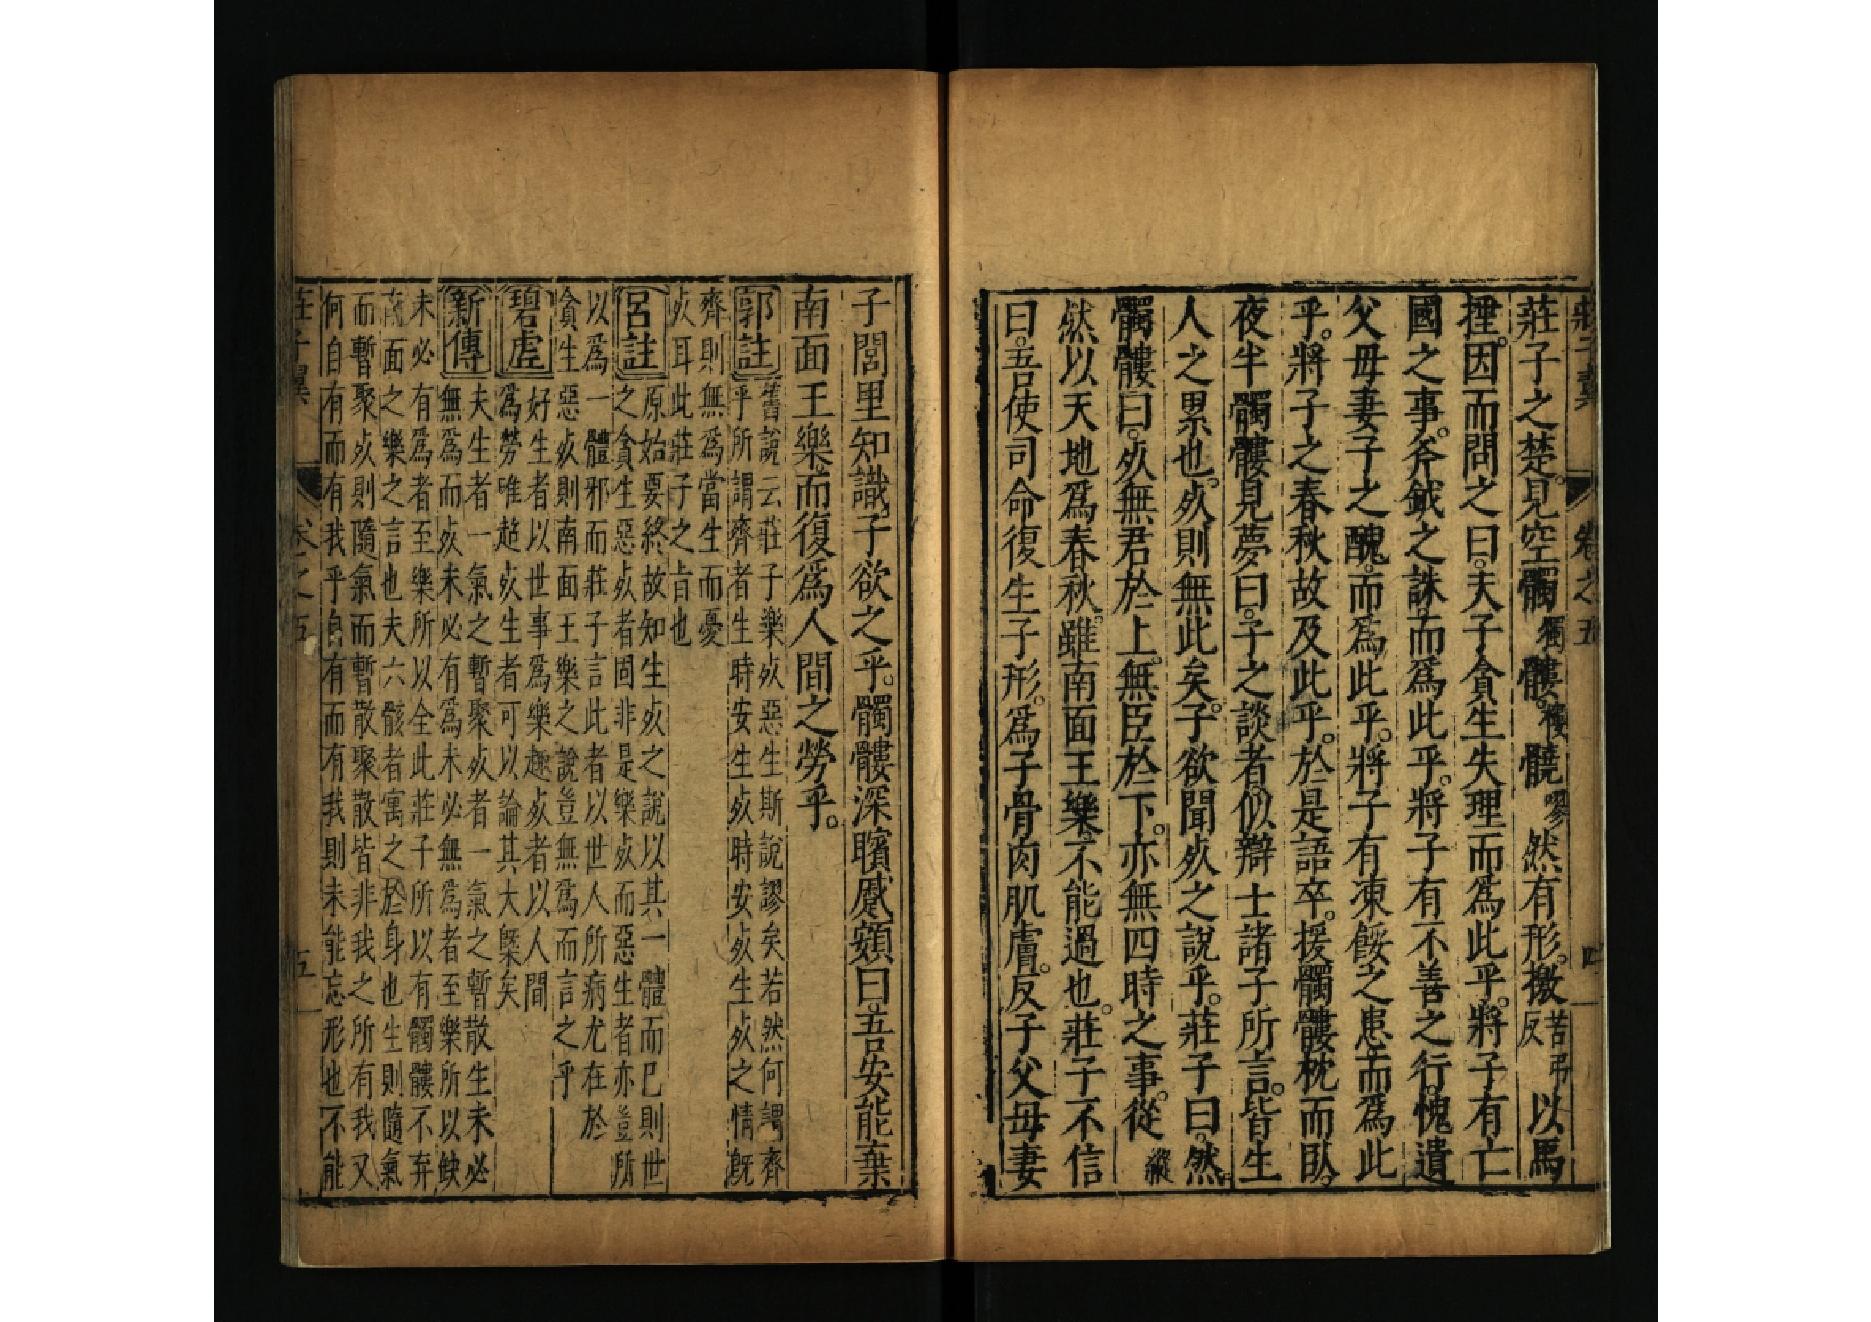 莊子翼 卷之五 四
莊子之楚。見空髑髑髏。樓髐嘐然有形。撽苦弔反以馬
捶。因而問之曰。夫子貪生失理而爲此乎。將子有亡
國之事。斧鉞之誅。而爲此乎。將子有不善之行。愧遺
父母妻子之醜。而爲此乎。將子有凍餒之患。而爲此
乎。將子之春秋故及此乎。於是語卒。援髑髏枕而臥。
夜半髑髏見夢曰。子之談者。似辯士諸子所言。皆生
人之累也。死則無此矣。子欲聞死之說乎。莊子曰。然。
髑髏曰。死無君於上。無臣於下。亦無四時之事。從縱
然以天地爲春秋。雖南面王樂。不能過也。莊子不信
曰。吾使司命復生子形。爲子骨肉肌膚。反子父母妻
子閭里知識。子欲之乎。髑髏深矉蹙頞曰。吾安能棄
南面王樂。而復爲人間之勞乎。
郭註
舊說云莊子樂死惡生斯說謬矣若然何謂齊
乎所謂齊者生時安生死時安死生死之情旣
齊則無爲當生而憂
死耳此莊子之旨也
呂註
原始要終故知生死之說以其一體而已則世
之貪生惡死者固非是樂死而惡生者亦豈所
以爲一體邪而莊子言此者以世人所病尤在於
貪生惡死則南面王樂之說豈無爲而言之乎
碧虛
好生者以世事爲樂趣死者以人間
爲勞唯超死生者可以論其大槩矣
新傳
夫生者一氣之暫聚死者一氣之暫散生未必
無爲而死未必有爲未必無爲者至樂所以缺
未必有爲者至樂所以全此莊子所以有髑髏不弃
南面之樂之言也夫六骸者寓之於身也生則隨氣
而暫聚死則隨氣而暫散聚散皆非我之所有我又
何自有而有我乎自有而有我則未能忘形也不能
莊子翼 卷之五 五